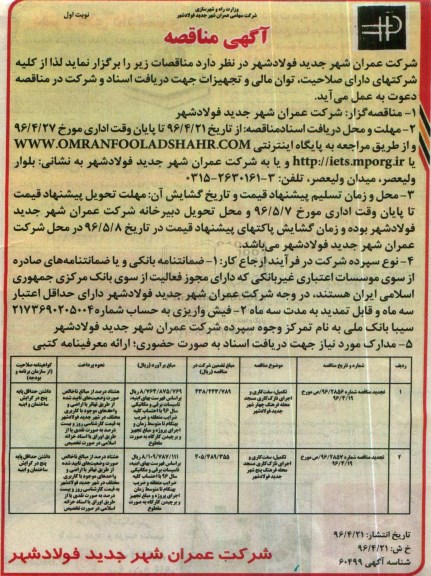 وزارت راه و شهرسازی
شرکت سهامی عمران شهر جدید فولادشهر
نوبت اول
آگهی مناقصه
شرکت عمران شهر جدید فولادشهر در نظر دارد مناقصات زیر را برگزار نماید لذا از کلیه
شرکتهای دارای صلاحیت، توان مالی و تجهیزات جهت دریافت اسناد و شرکت در مناقصه
دعوت به عمل می‌آید.
۱- مناقصه‌گزار: شرکت عمران شهر جدید فولادشهر
۲- مهلت و محل دریافت اسنادمناقصه: از تاریخ ۹۶/۴/۲۱ تا پایان وقت اداری مورخ ۹۶/۴/۲۷
و از طریق مراجعه به پایگاه اینترنتی WWW.OMRANFOOLADSHAHR.COM
یا http://iets.mporg.ir و یا به شرکت عمران شهر جدید فولادشهر به نشانی: بلوار
ولیعصر، میدان ولیعصر، تلفن: ۳-۲۶۳۰۱۶۱-۰۳۱۵
۳- محل و زمان تسلیم پیشنهاد قیمت و تاریخ گشایش آن: مهلت تحویل پیشنهاد قیمت
تا پایان وقت اداری مورخ ۹۶/۵/۷ و محل تحویل دبیرخانه شرکت عمران شهر جدید
فولادشهر بوده و زمان گشایش پاکتهای پیشنهاد قیمت در تاریخ ۹۶/۵/۸ در محل شرکت
عمران شهر جدید فولادشهر می‌باشد.
۴- نوع سپرده شرکت در فرآیند ارجاع کار: ۱- ضمانتنامه بانکی و یا ضمانتنامه‌های صادره
از سوی موسسات اعتباری غیربانکی که دارای مجوز فعالیت از سوی بانک مرکزی جمهوری
اسلامی ایران هستند، در وجه شرکت عمران شهر جدید فولادشهر دارای حداقل اعتبار
سه ماه و قابل تمدید به مدت سه ماه ۲- فیش واریزی به حساب شماره ۲۱۷۳۶۹۰۲۰۵۰۰۴
سیبا بانک ملی به نام تمرکز وجوه سپرده شرکت عمران شهر جدید فولادشهر
۵- مدارک مورد نیاز جهت دریافت اسناد به صورت حضوری: ارائه معرفینامه کتبی
ردیف
شماره و تاریخ مناقصه
موضوع مناقصه
مبلغ تضمین شرکت در مناقصه (ریال)
مبلغ برآورد (ریال)
نحوه پرداخت
گواهینامه صلاحیت (از سازمان برنامه و بودجه)
۱
تجدید مناقصه شماره ۹۶/۲۸۵۶/ص مورخ ۹۶/۴/۱۹
تکمیل، سفت‌کاری و اجرای نازک‌کاری مسجد محله فرهنگ چهار شهر جدید فولادشهر
۴۳۸/۴۴۳/۷۸۹
۲
تجدید مناقصه شماره ۹۶/۲۸۵۷/ص مورخ ۹۶/۴/۱۹
تکمیل، سفت‌کاری و اجرای نازک‌کاری مسجد محله فرهنگ پنج شهر جدید فولادشهر
۴۰۵/۴۸۹/۳۵۵
تاریخ انتشار: ۹۶/۴/۲۱
خ ش: ۹۶/۴/۲۱
شناسه آگهی ۶۰۴۹۹
شرکت عمران شهر جدید فولادشهر